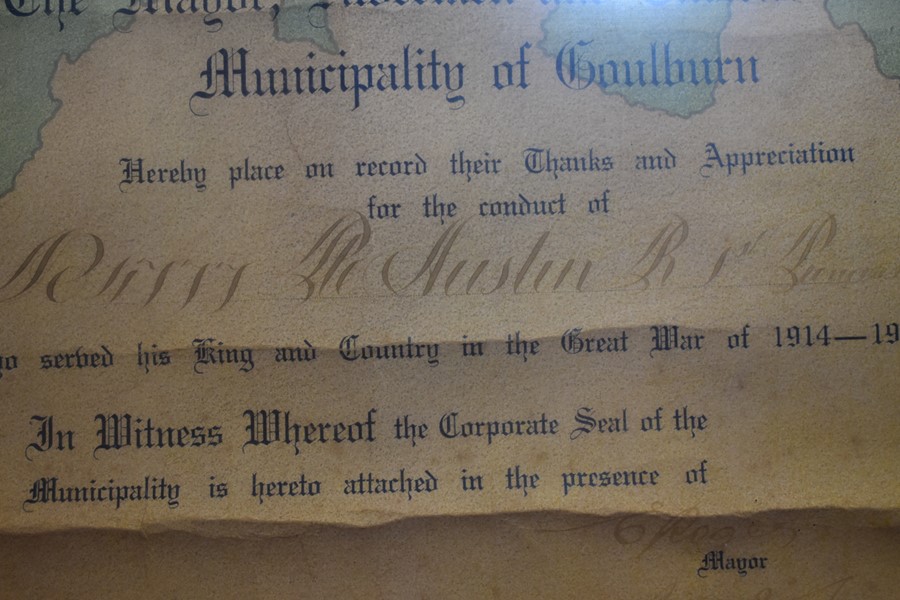 The Mayor, Aldermen and
Municipality of Goulburn
Hereby place on record their Thanks and Appreciation
for the conduct of
Austin R
served his King and Country in the Great War of 1914—19
In Witness Whereof the Corporate Seal of the
Municipality is hereto attached in the presence of
Mayor